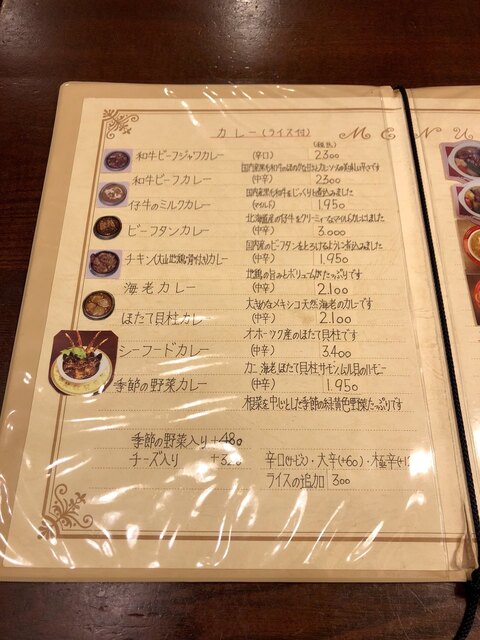 カレー(ライス付)
MENU
(税抜)
和牛ビーフジャワカレー (辛口) 2300
和牛ビーフカレー (中辛) 2300
国内産黒毛和牛をじっくりと煮込みました
仔牛のミルクカレー (マイルド) 1.950
北海道産の仔牛をクリーミィなマイルドカレーにしました
ビーフタンカレー (中辛) 3.000
国内産のビーフタンをとろけるように煮込みました
チキン(大山地鶏/骨付き)カレー (中辛) 1.950
地鶏の旨みとボリュームがたっぷりです
海老カレー (中辛) 2.100
大きめなメキシコ天然海老のカレーです
ほたて貝柱カレー (中辛) 2.100
オホーツク産のほたて貝柱です
シーフードカレー (中辛) 3.400
カニ海老ほたて貝柱サモンムール貝のハーモニー
季節の野菜カレー (中辛) 1.950
根菜を中心とした季節の緑黄色野菜たっぷりです
季節の野菜入り +480
チーズ入り +320 辛口(サービス)・大辛(+60)・極辛
ライスの追加 300